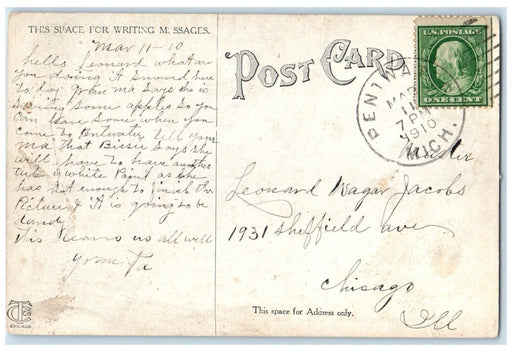 THIS SPACE FOR WRITING M SSAGES.
Mar 11-10
hello Leonard what are
you doing it snowed here
to day Gran ma says she is
some apples so you
can have some when you
come to Pentwater tell your
ma that Bissie says she
will have to have another
tub of white Paint as she
has not enough to finish the
Picture & it is going to be
dandy
This leaves us all well
Gran Pa
CT
CHICAGO
POST CARD
PENTWATER
MAR
11
7 PM
1910
MICH.
U.S. POSTAGE
ONE CENT
Master
Leonard Wagar Jacobs
1931 Sheffield ave
Chicago
Ill
This space for Address only.